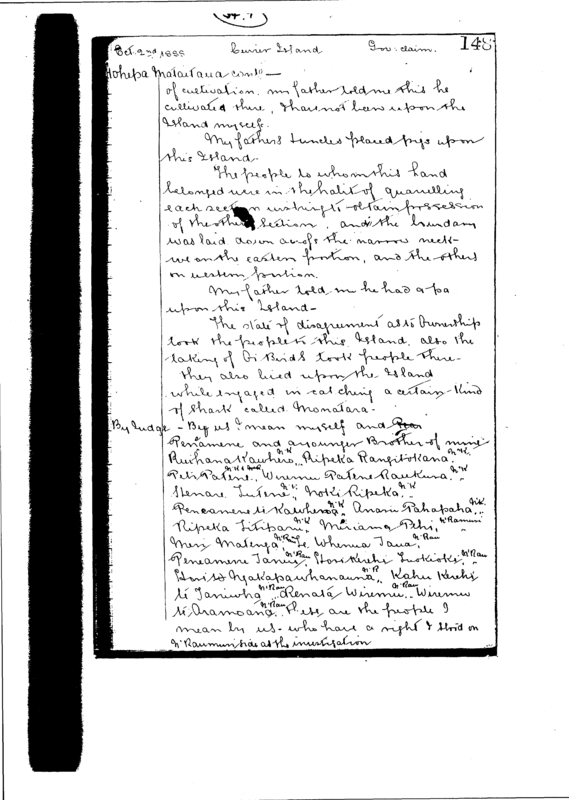 Oct. 2nd 1888 Cuvier Island Gov: claim. 148
Hohepa Mataitaua contd —
of cultivation. my father told me this he
cultivated there, I have not been upon the
Island myself.
My fathers & uncles placed pigs upon
this Island.
The people to whom this land
belonged were in the habit of quarelling
each section wishing to obtain possession
of the other Section. and the boundary
was laid down across the narrow neck -
we on the eastern portion, and the others
on western portion.
My father told me he had a pa
upon this Island -
The state of disagreement as to Ownership
took the people to this Island. also the
taking of Oi Birds took people there -
they also lived upon the Island
while engaged in catching a certain kind
of Shark called Monatara.
By Judge - By us I mean myself and
Peneamene and a younger Brother of mine
Ruihana Kawhero, Ripeka Rangitokana.
Peti Patene, Wiremu Patene Raukura.
Henare Tutene, Noki Ripeka.
Peneamene te Kawhero, Anaru Pahapaha,
Ripeka Titipari, Miriama Pehi,
Mere Matenga, Te Whenua Taua,
Peneamene Tanui, Hori Kerehi Tuokioki,
Hori te Ngakapawhanaunga, Kahu Kerehi
te Taniwha, Renata Wiremu, Wiremu
te Aramoana. these are the people I
mean by us - who have a right & stood on
N' Raumuri side at the investigation